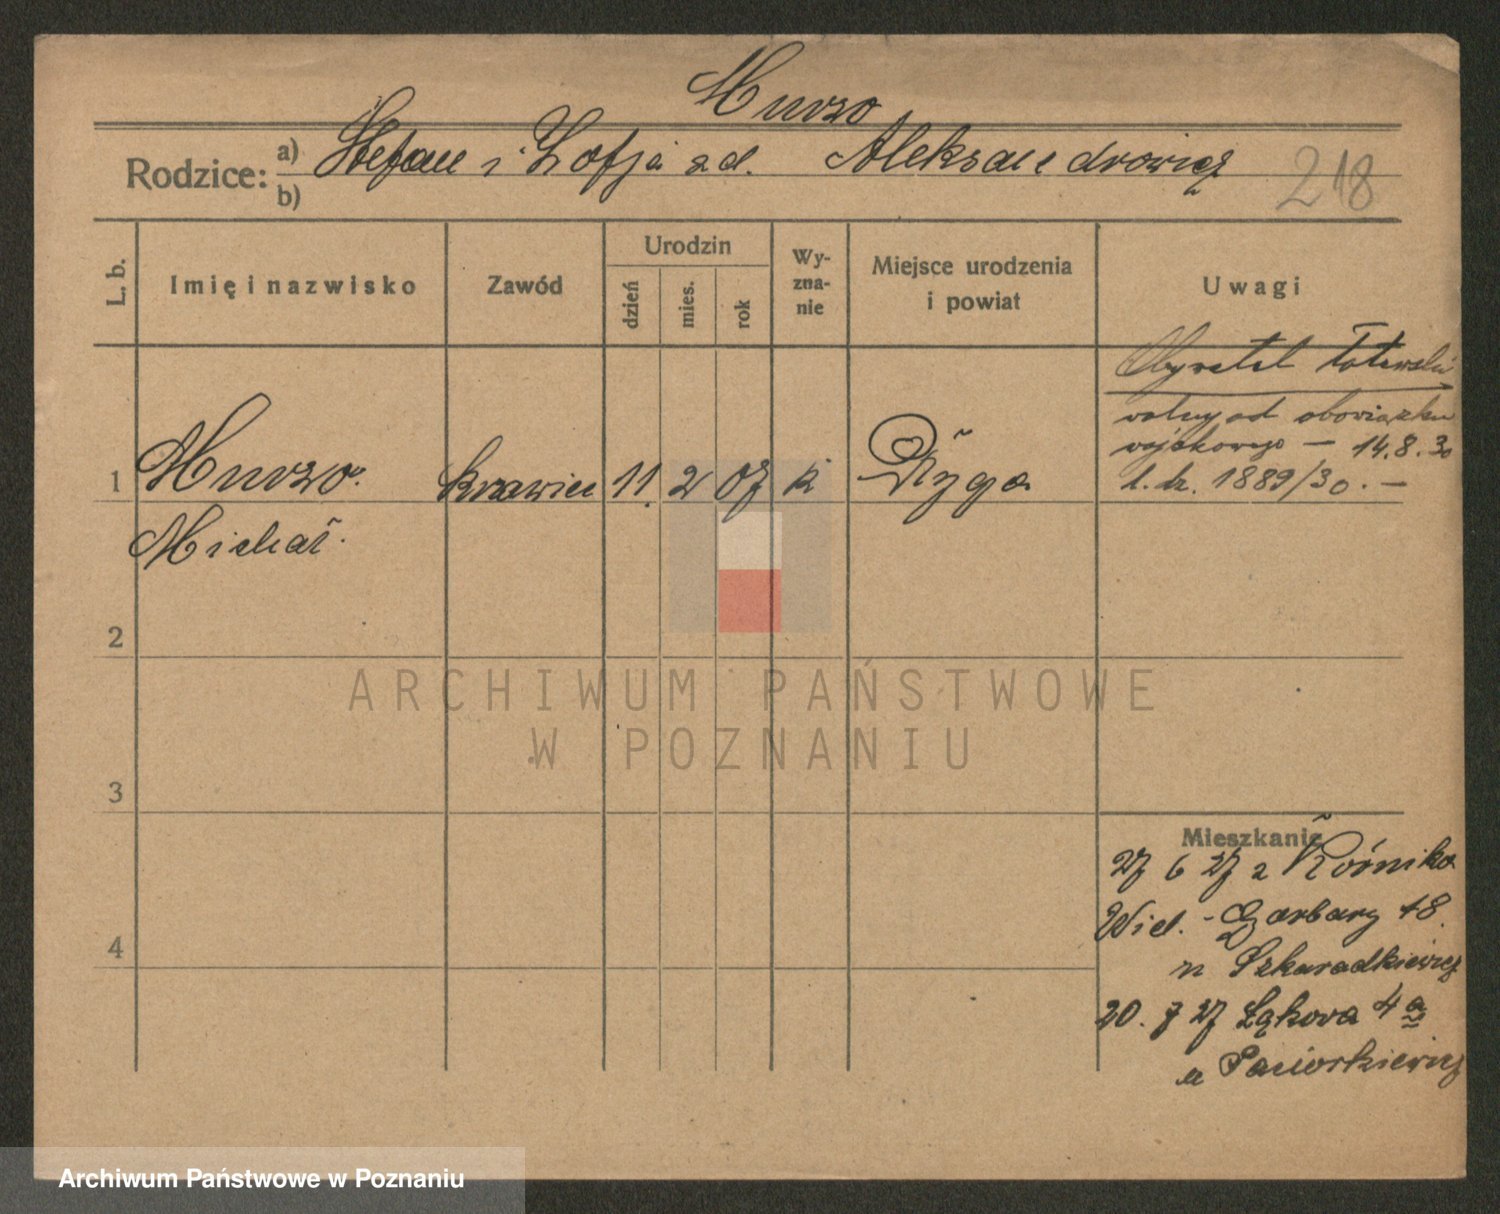 Murzo
Rodzice: a) Stefan i Zofja zd. Aleksandrowicz
b)
218
L. b.
Imię i nazwisko
Zawód
Urodzin
dzień
mies.
rok
Wy-
zna-
nie
Miejsce urodzenia
i powiat
Uwagi
Obywatel łotewski
wolny od obowiązku
wojskowego – 14.8.30
l. dz. 1889/30. –
1 Murzo krawiec 11. 2 07 k Ryga
Michał.
2
3
4
Mieszkanie
27 6 27 z Kórnika
Wiel. - Garbary 48.
u Szkaradkiewicz
20. 7 27 Łąkowa 4 a
u Paciorkiewicz
ARCHIWUM PAŃSTWOWE
W POZNANIU
Archiwum Państwowe w Poznaniu